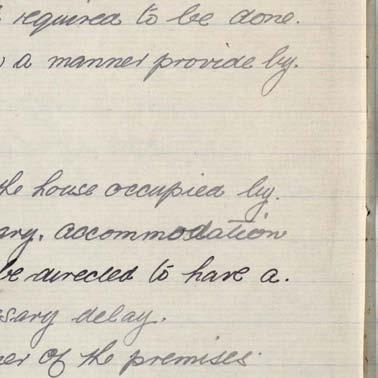 required to be done.
a manner provide by.
the house occupied by.
accommodation
be directed to have a.
delay.
of the premises.